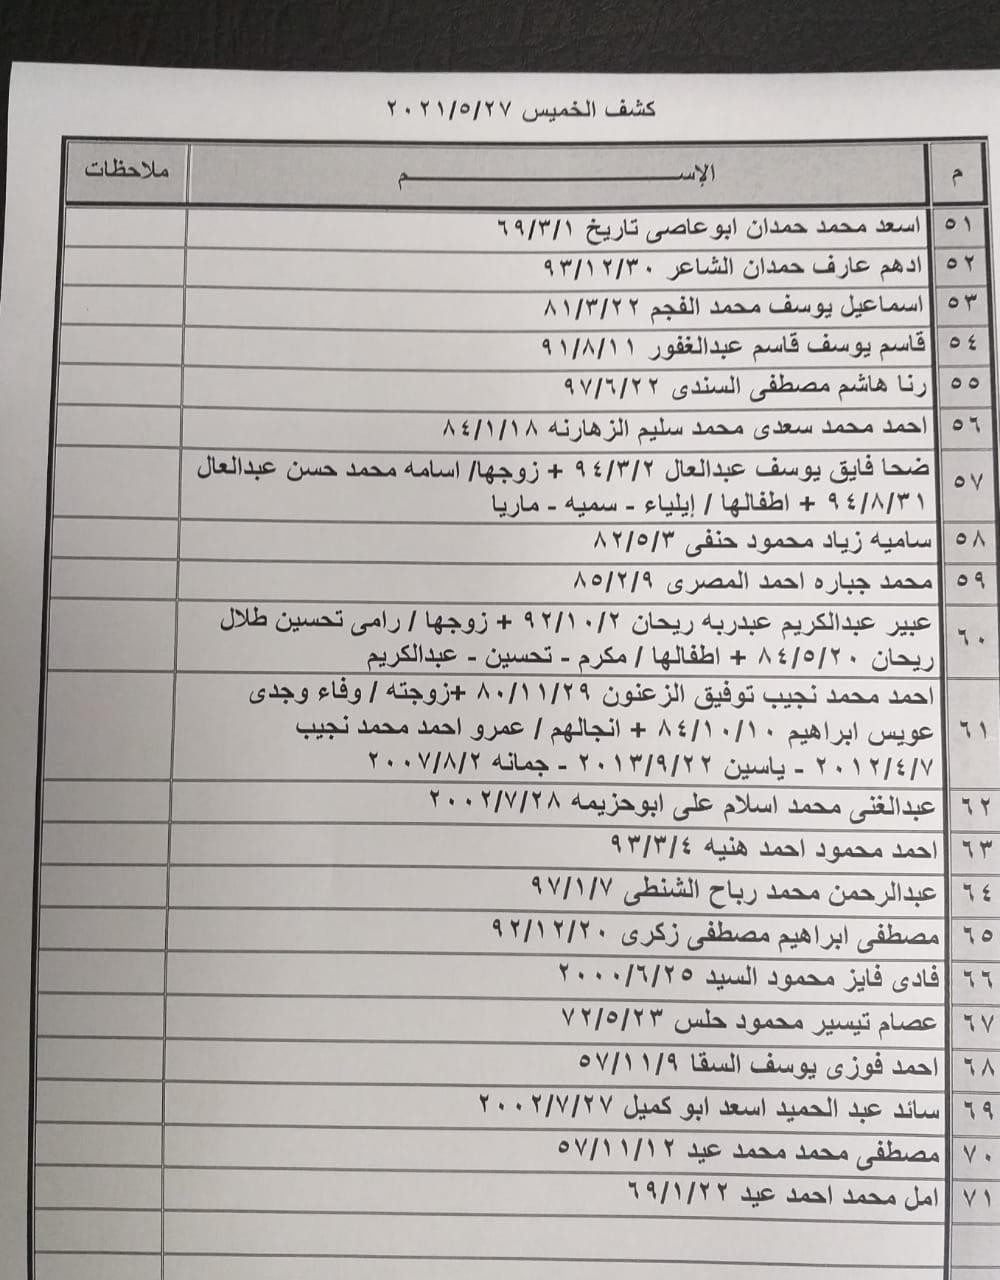 كشف الخميس ٢٠٢١/٥/٢٧
م الإســـــــــــــــــــــم ملاحظات
٥١ اسعد محمد حمدان ابوعاصى تاريخ ٦٩/٣/١
٥٢ ادهم عارف حمدان الشاعر ٩٣/١٢/٣٠
٥٣ اسماعيل يوسف محمد الفجم ٨١/٣/٢٢
٥٤ قاسم يوسف قاسم عبدالغفور ٩١/٨/١١
٥٥ رنا هاشم مصطفى السندى ٩٧/٦/٢٢
٥٦ احمد محمد سعدى محمد سليم الزهارنه ٨٤/١/١٨
٥٧ ضحا فايق يوسف عبدالعال ٩٤/٣/٢ + زوجها/ اسامه محمد حسن عبدالعال
٩٤/٨/٣١ + اطفالها / إيلياء - سميه - ماريا
٥٨ ساميه زياد محمود حنفى ٨٢/٥/٣
٥٩ محمد جباره احمد المصرى ٨٥/٢/٩
٦٠ عبير عبدالكريم عبدربه ريحان ٩٢/١٠/٢ + زوجها / رامى تحسين طلال
ريحان ٨٤/٥/٢٠ + اطفالها / مكرم - تحسين - عبدالكريم
٦١ احمد محمد نجيب توفيق الزعنون ٨٠/١١/٢٩ +زوجته / وفاء وجدى
عويس ابراهيم ٨٤/١٠/١٠ + انجالهم / عمرو احمد محمد نجيب
٢٠١٢/٤/٧ - ياسين ٢٠١٣/٩/٢٢ - جمانه ٢٠٠٧/٨/٢
٦٢ عبدالغنى محمد اسلام على ابوحزيمه ٢٠٠٢/٧/٢٨
٦٣ احمد محمود احمد هنيه ٩٣/٣/٤
٦٤ عبدالرحمن محمد رباح الشنطى ٩٧/١/٧
٦٥ مصطفى ابراهيم مصطفى زكرى ٩٢/١٢/٢٠
٦٦ فادى فايز محمود السيد ٢٠٠٠/٦/٢٥
٦٧ عصام تيسير محمود حلس ٧٢/٥/٢٣
٦٨ احمد فوزى يوسف السقا ٥٧/١١/٩
٦٩ سائد عبد الحميد اسعد ابو كميل ٢٠٠٢/٧/٢٧
٧٠ مصطفى محمد محمد عيد ٥٧/١١/١٢
٧١ امل محمد احمد عيد ٦٩/١/٢٢